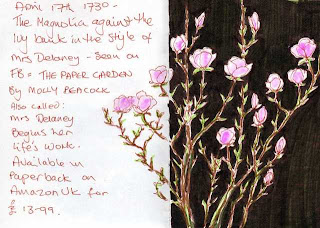 April 17th 1730-
The Magnolia against the
Ivy bank in the style of
Mrs Delaney - Seen on
FB = THE PAPER GARDEN
By MOLLY PEACOCK
Also called:
Mrs Delaney
Begins her
Life's work.
Available in
Paperback on
Amazon UK for
£13-99.